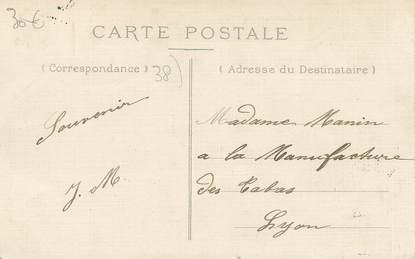 30€
CARTE POSTALE
( Correspondance )
38)
( Adresse du Destinataire )
Souvenir
J. M
Madame Manin
a la Manufacture
des Tabas
Lyon